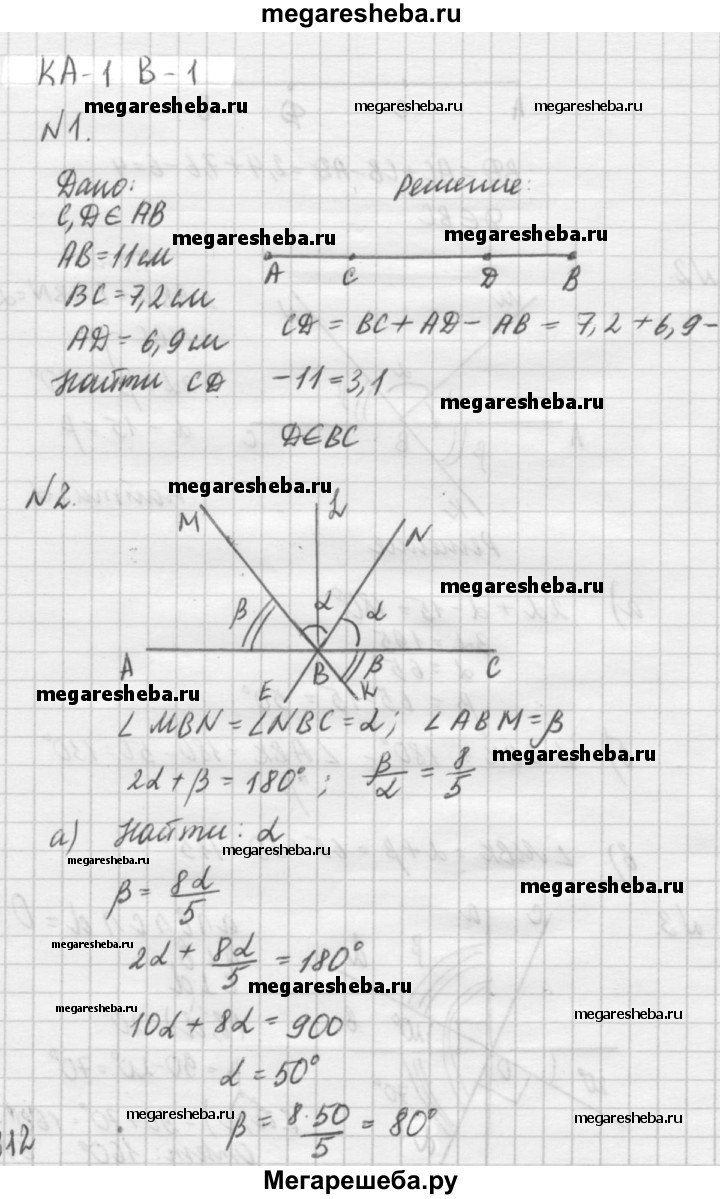 megaresheba.ru
КА-1 В-1
megaresheba.ru megaresheba.ru megaresheba.ru
№1.
Дано: Решение:
C, D ∈ AB
megaresheba.ru megaresheba.ru
AB = 11 см
A C D B
BC = 7,2 см
CD = BC + AD - AB = 7,2 + 6,9 -
AD = 6,9 см
Найти CD - 11 = 3,1
megaresheba.ru
D ∈ BC
№2.
megaresheba.ru
M L N
megaresheba.ru
β α α
A B β C
E K
megaresheba.ru
∠MBN = ∠NBC = α; ∠ABM = β
megaresheba.ru
2α + β = 180°; β/α = 8/5
а) Найти: α
megaresheba.ru megaresheba.ru
β = 8α/5
megaresheba.ru
megaresheba.ru
2α + 8α/5 = 180°
megaresheba.ru
megaresheba.ru megaresheba.ru
10α + 8α = 900
α = 50°
megaresheba.ru megaresheba.ru
β = 8·50/5 = 80°
312
Мегарешеба.ру